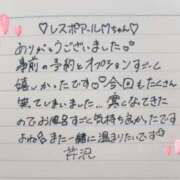 ♡レスポアールMちゃん♡
ありがとうございました♡
事前の予約とオプションすごく
嬉しかったです♡今回もたくさん
笑てしまいました… 寒くなってきた
のでお風呂すごく気持ち良かったです
よね♡また一緒に温まりたいです☆
芹沢